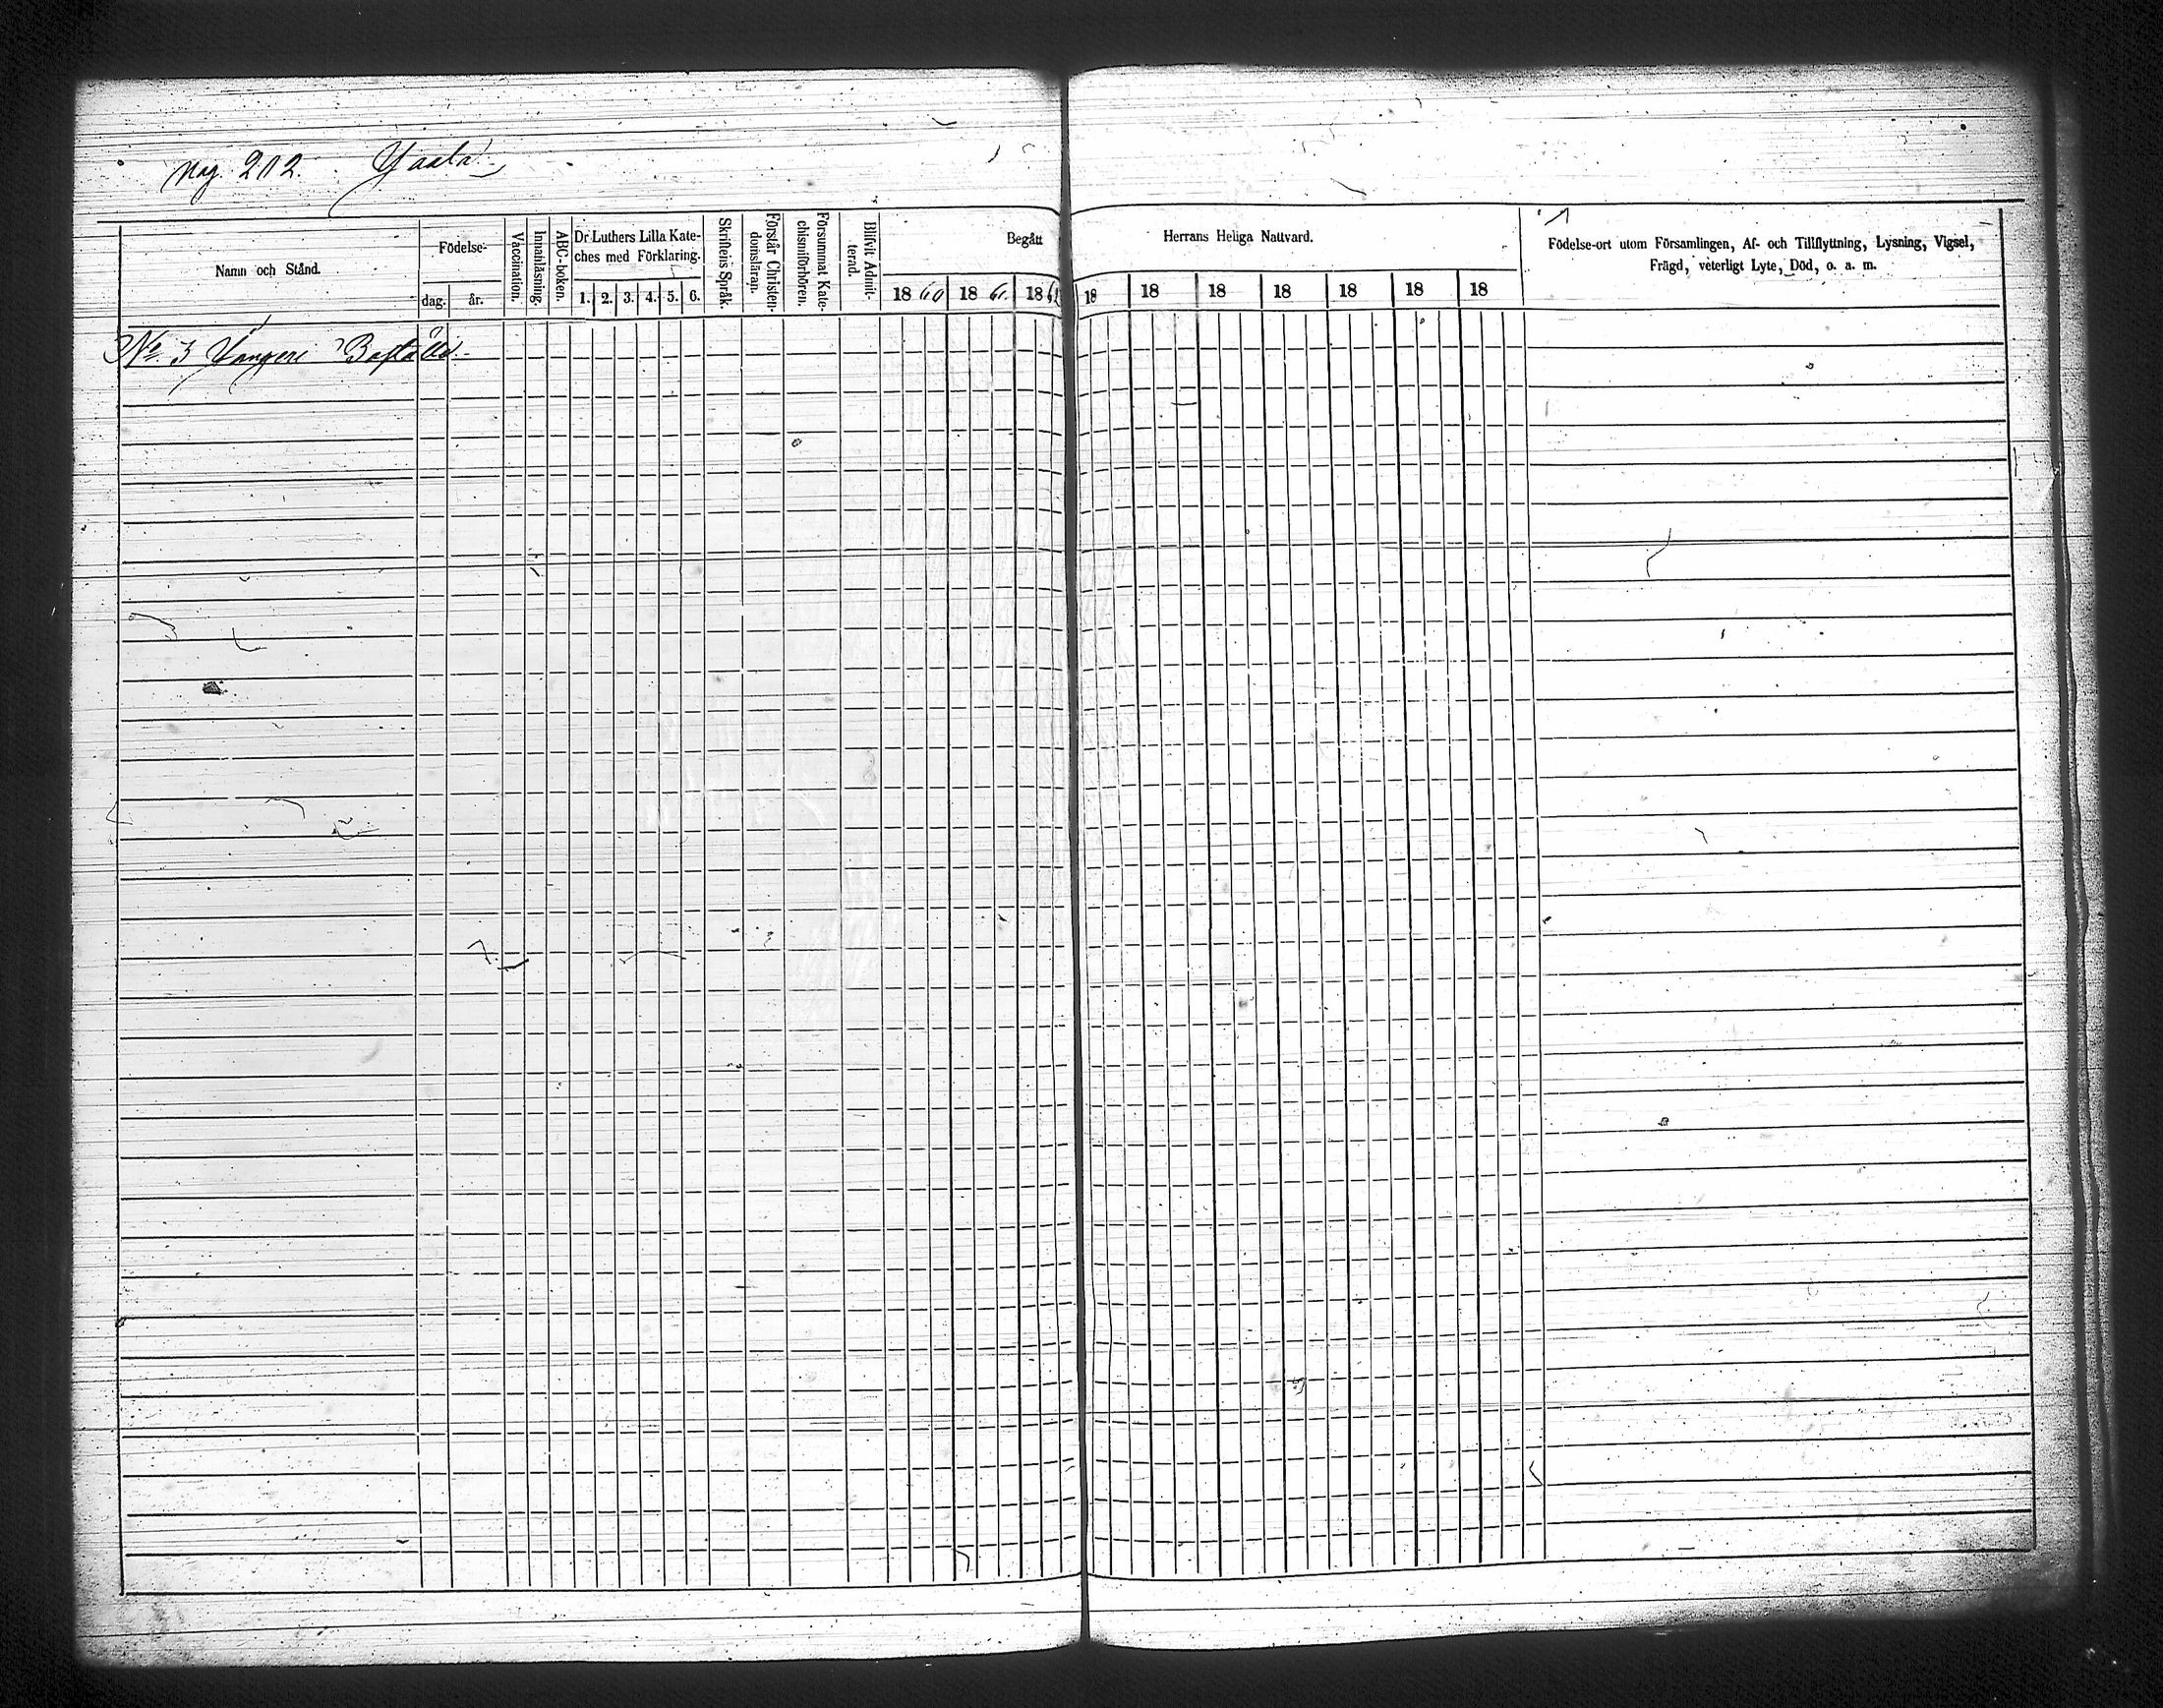 Pag. 202. Yaala
Namn och Stånd.
Födelse-
dag. år.
Vaccination.
Innanläsning.
ABC-boken.
Dr Luthers Lilla Kate-
ches med Förklaring.
1. 2. 3. 4. 5. 6.
Skriftens Språk.
Förstår Christen-
domsläran.
Försummat Kate-
chismiförhören.
Blifvit Admit-
terad.
Begått Herrans Heliga Nattvard.
18 60 18 61. 18 62 18 18 18 18 18 18 18
Födelse-ort utom Församlingen, Af- och Tillflyttning, Lysning, Vigsel,
Frägd, veterligt Lyte, Död, o. a. m.
No. 3 Boställe